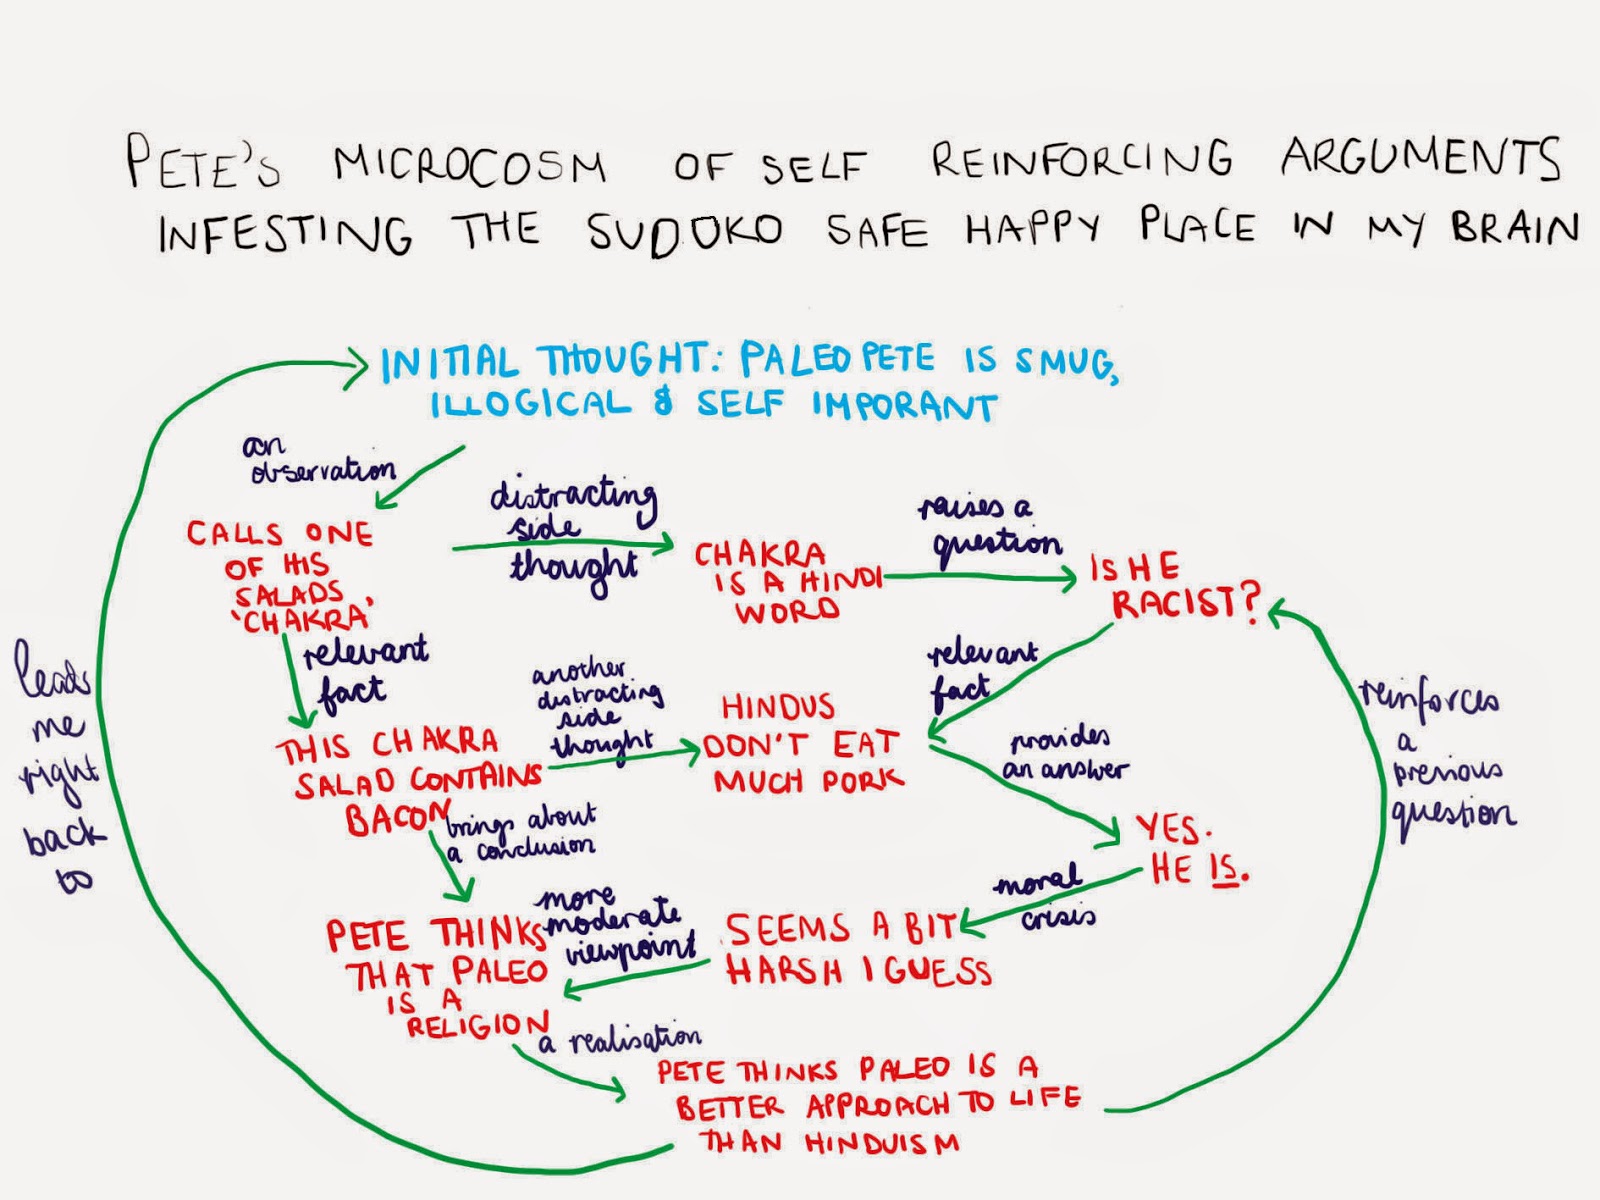 PETE'S MICROCOSM OF SELF REINFORCING ARGUMENTS
INFESTING THE SUDOKO SAFE HAPPY PLACE IN MY BRAIN
INITIAL THOUGHT: PALEO PETE IS SMUG,
ILLOGICAL & SELF IMPORANT
an
observation
CALLS ONE
OF HIS
SALADS,
'CHAKRA'
distracting
side
thought
CHAKRA
IS A HINDI
WORD
raises a
question
IS HE
RACIST?
relevant
fact
relevant
fact
THIS CHAKRA
SALAD CONTAINS
BACON
another
distracting
side
thought
HINDUS
DON'T EAT
MUCH PORK
provides
an answer
YES.
HE IS.
moral
crisis
SEEMS A BIT
HARSH I GUESS
more
moderate
viewpoint
brings about
a conclusion
PETE THINKS
THAT PALEO
IS A
RELIGION
a realisation
PETE THINKS PALEO IS A
BETTER APPROACH TO LIFE
THAN HINDUISM
leads
me
right
back
to
reinforces
a
previous
question